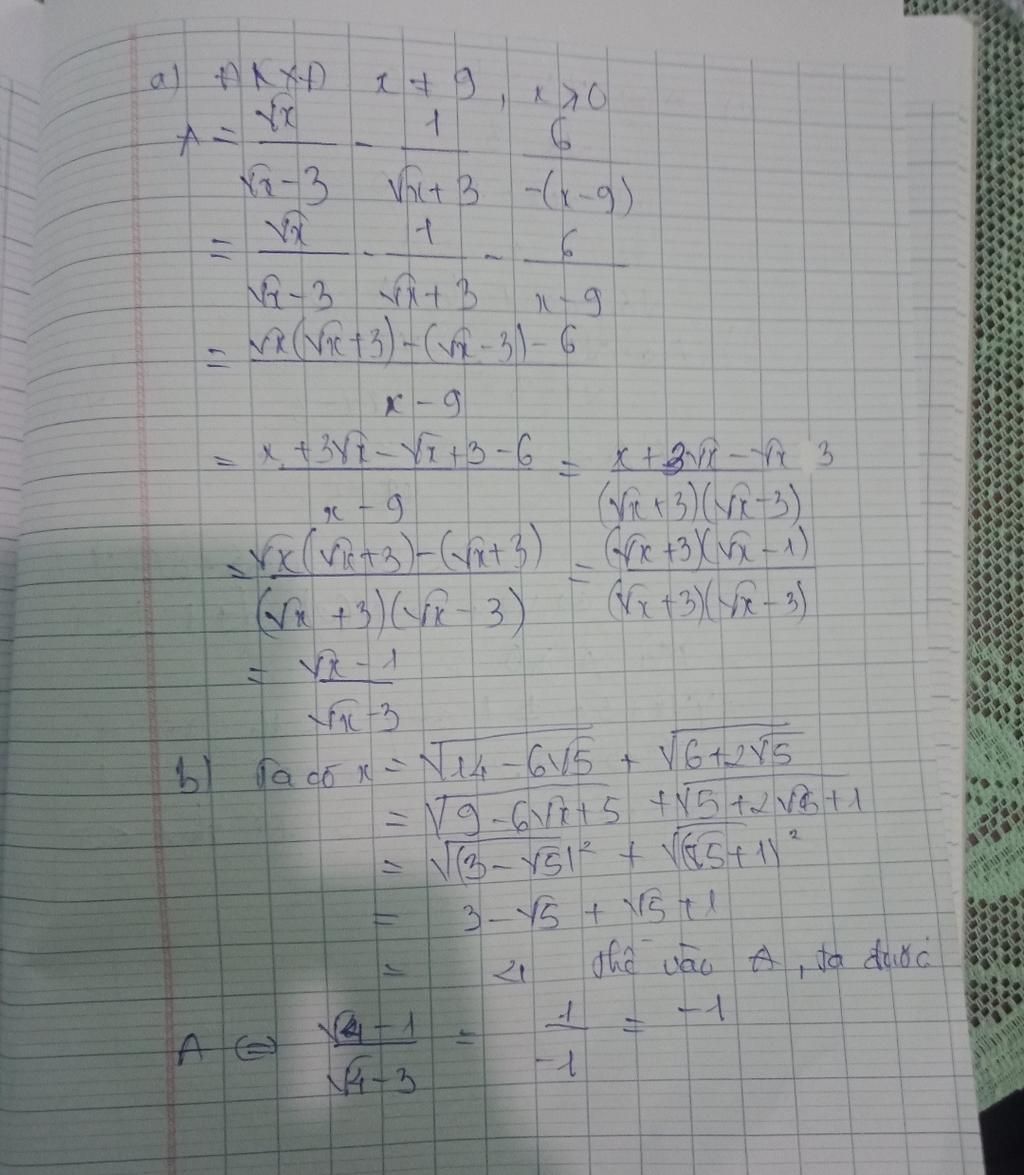 a) ĐKXĐ x ≠ 9, x ≥ 0
A = √x/(√x-3) - 1/(√x+3) 6/(-(x-9))
= √x/(√x-3) - 1/(√x+3) - 6/(x-9)
= (√x(√x+3)-(√x-3)-6)/(x-9)
= (x+3√x-√x+3-6)/(x-9) = (x+3√x-√x 3)/((√x+3)(√x-3))
= (√x(√x+3)-(√x+3))/((√x+3)(√x-3)) = ((√x+3)(√x-1))/((√x+3)(√x-3))
= (√x-1)/(√x-3)
b) Ta có x = √(14-6√5) + √(6+2√5)
= √(9-6√x+5) + √(5+2√5+1)
= √((3-√5)²) + √((√5+1)²)
= 3-√5 + √5+1
= 4 thế vào A, ta được
A ⇔ (√4-1)/(√4-3) = 1/-1 = -1